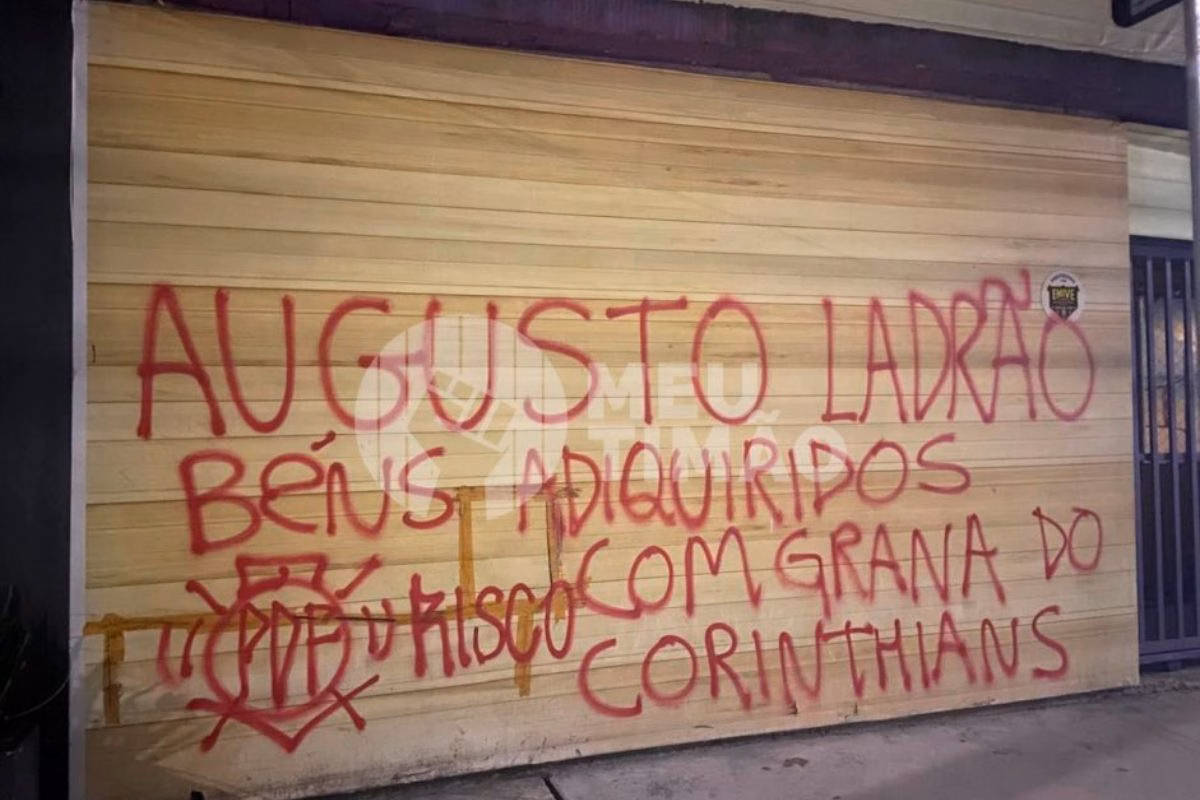 AUGUSTO LADRÃO
BÉNS ADIQUIRIDOS
COM GRANA DO
CORINTHIANS
PDF
RISCO
MEU
TIMÃO
EMIVE